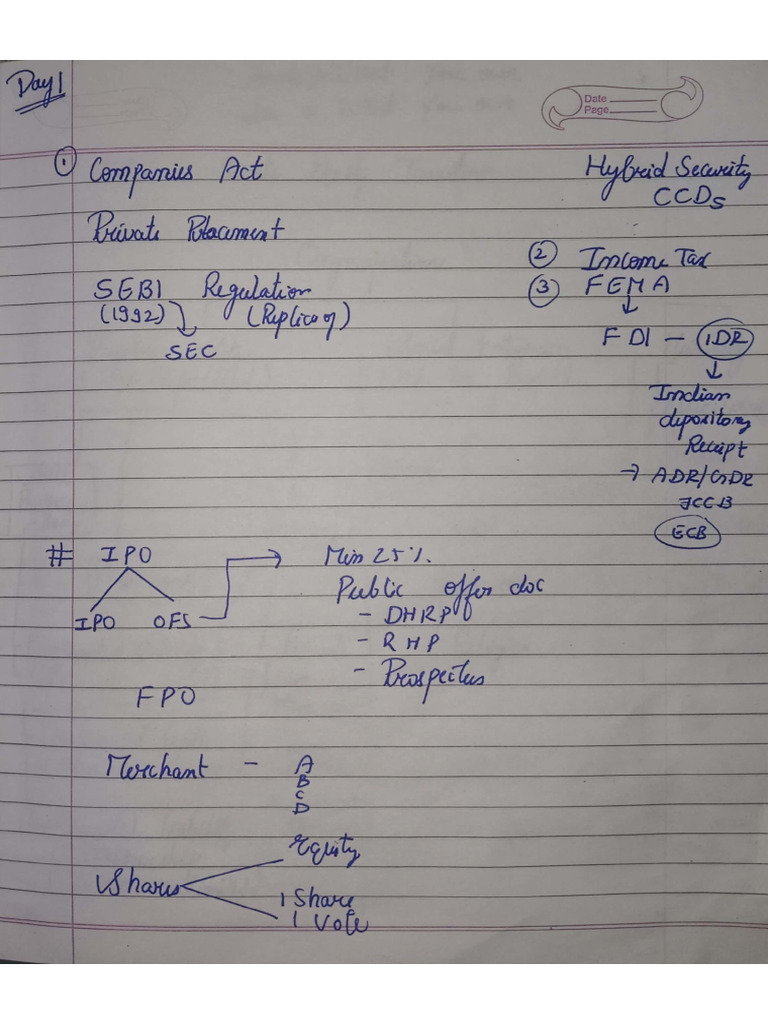 Day 1
Date
Page
① Companies Act
Private Placement
SEBI Regulation
(1992) (Replica of)
SEC
Hybrid Security
CCDs
② Income Tax
③ FEMA
FDI - IDR
Indian
depository
Receipt
→ ADR/GDR
FCCB
ECB
# IPO
IPO OFS
Min 25%.
Public offer doc
- DHRP
- RHP
- Prospectus
FPO
Merchant - A
B
C
D
Shares
Equity
1 Share
1 Vote